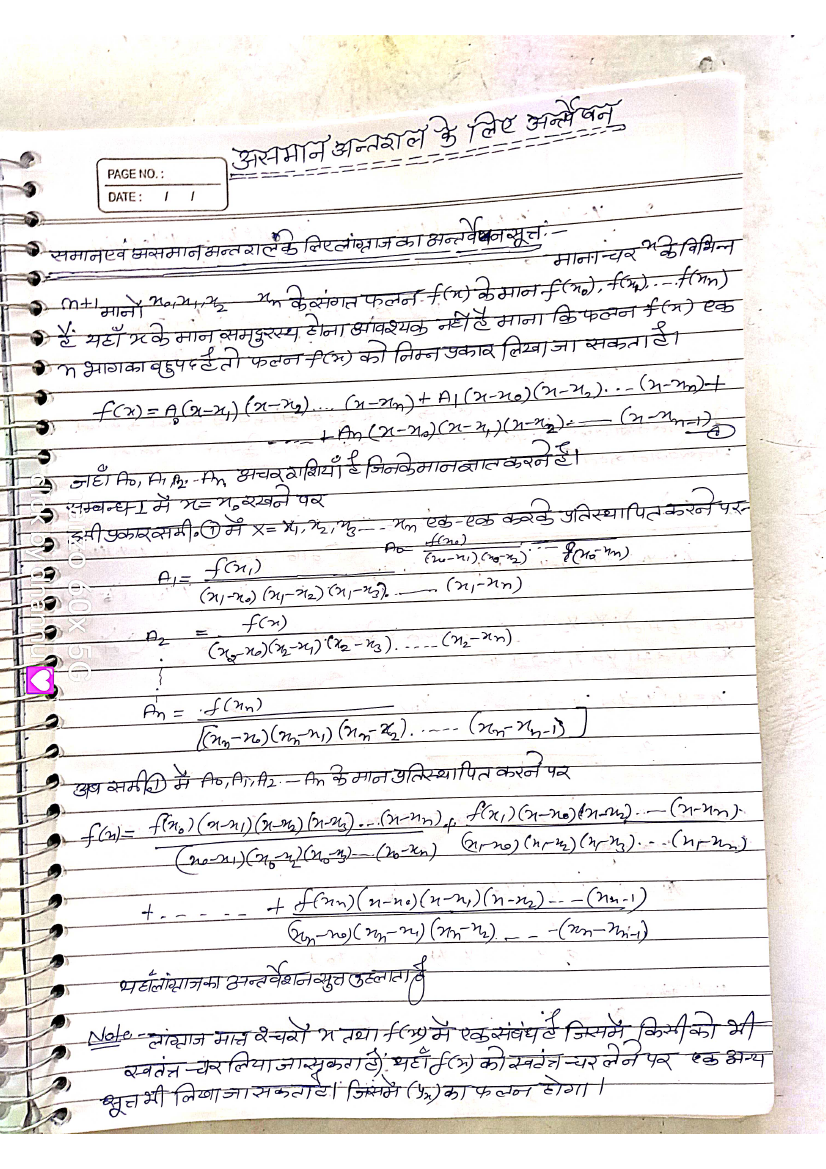 असमान अन्तराल के लिए अन्तर्वेषन
PAGE NO. :
DATE : / /
समान एवं असमान अन्तराल के लिए लांग्राज का अन्तर्वेषन सूत्र:-
माना चर x के विभिन्न
n+1 मानों x₀, x₁, x₂ xn के संगत फलन f(x) के मान f(x₀), f(x₁) ... f(xn)
हैं यहाँ x के मान समदुरस्थ होना आवश्यक नहीं है माना कि फलन f(x) एक
n भाग का बहुपद है तो फलन f(x) को निम्न प्रकार लिखा जा सकता है।
f(x) = A₀(x-x₁)(x-x₂)... (x-xn) + A₁(x-x₀)(x-x₂)... (x-xn)+
..... + An(x-x₀)(x-x₁)(x-x₂)..... (x-xn-1) ①
जहाँ A₀, A₁, A₂.. An अचर राशियाँ है जिनके मान ज्ञात करने है।
सम्बन्ध-I में x = x₀ रखने पर
इसी प्रकार समी. ① में x = x₁, x₂, x₃.... xn एक-एक करके प्रतिस्थापित करने पर-
A₀ = f(x₀) / (x₀-x₁).(x₀-x₂) ... (x₀-xn)
A₁ = f(x₁) / (x₁-x₀)(x₁-x₂)(x₁-x₃)...... (x₁-xn)
A₂ = f(x) / (x₂-x₀)(x₂-x₁)(x₂-x₃)..... (x₂-xn)
An = f(xn) / [(xn-x₀)(xn-x₁)(xn-x₂)...... (xn-xn-1)]
अब समी ① में A₀, A₁, A₂ .. An के मान प्रतिस्थापित करने पर
f(x) = f(x₀)(x-x₁)(x-x₂)(x-x₃)...(x-xn) / (x₀-x₁)(x₀-x₂)(x₀-x₃)...(x₀-xn) + f(x₁)(x-x₀)(x-x₂)...(x-xn) / (x₁-x₀)(x₁-x₂)(x₁-x₃)...(x₁-xn)
+ ...... + f(xn)(x-x₀)(x-x₁)(x-x₂)...(xn-1) / (xn-x₀)(xn-x₁)(xn-x₂)....(xn-xn-1)
यहाँ लांग्राज का अन्तर्वेशन सुत्र कहलाता है
Note - लांग्राज मात्र 2 चरों x तथा f(x) में एक संबंध है जिसमें किसी को भी
स्वतंत्र चर लिया जा सकता है। यहाँ f(x) को स्वतंत्र चर लेने पर एक अन्य
सूत्र भी लिखा जा सकता है। जिसमें (x) का फलन होगा।